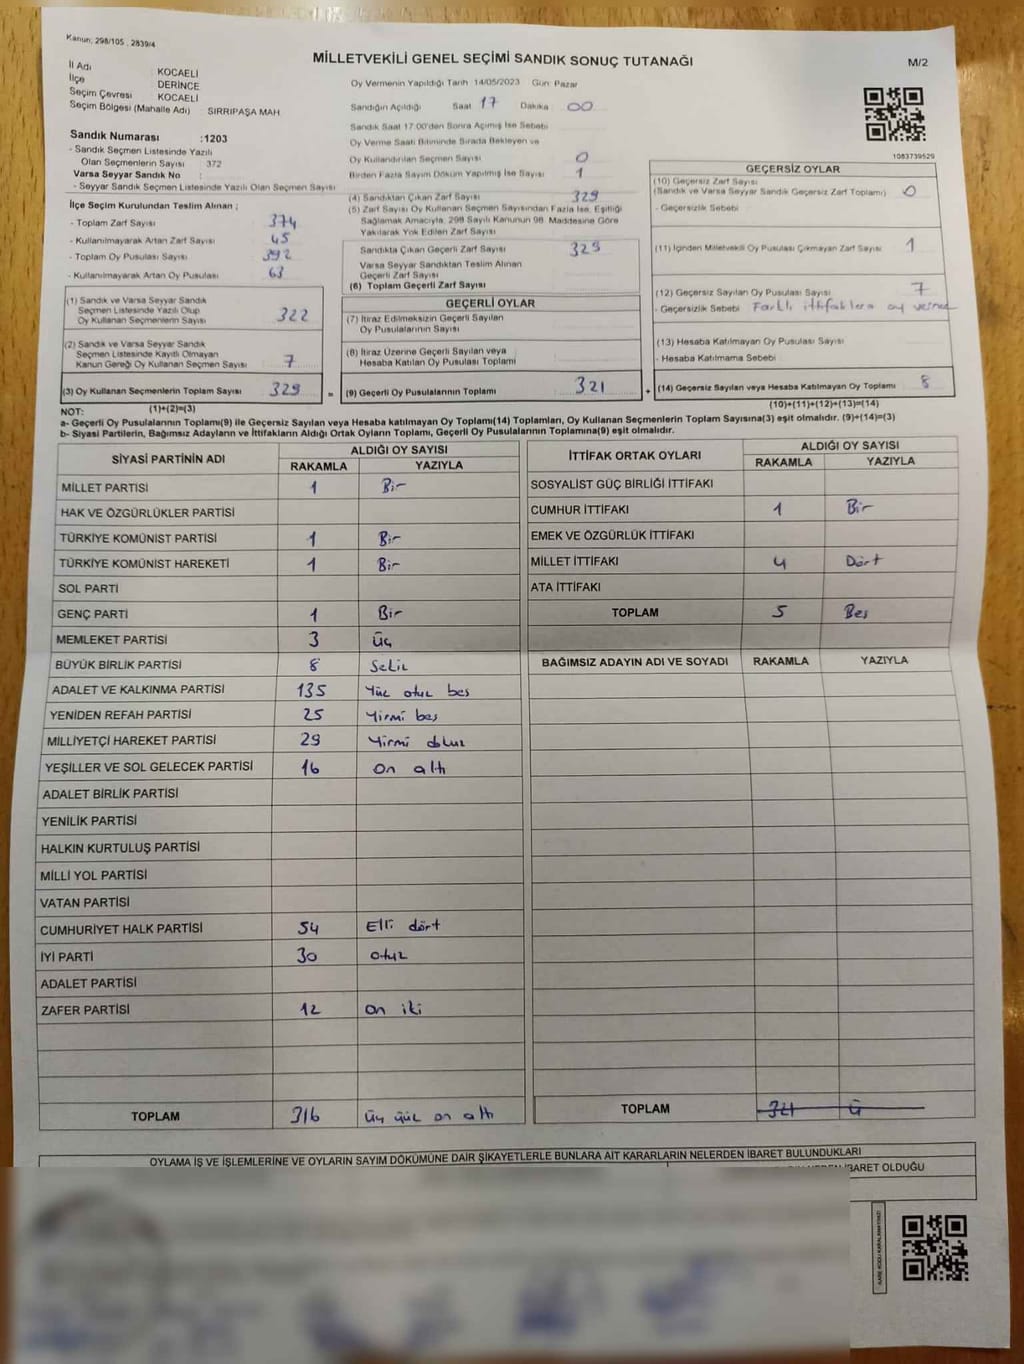 Kanun; 298/105 , 2839/4
MİLLETVEKİLİ GENEL SEÇİMİ SANDIK SONUÇ TUTANAĞI
M/2
İl Adı KOCAELİ
İlçe DERİNCE
Seçim Çevresi KOCAELİ
Seçim Bölgesi (Mahalle Adı) SIRRIPAŞA MAH
Oy Vermenin Yapıldığı Tarih 14/05/2023 Gün Pazar
Sandığın Açıldığı Saat 17 Dakika 00
Sandık Saat 17:00'den Sonra Açılmış İse Sebebi
Oy Verme Saati Bitiminde Sırada Bekleyen ve
Oy Kullandırılan Seçmen Sayısı 0
Birden Fazla Sayım Döküm Yapılmış İse Sayısı 1
1083739529
Sandık Numarası :1203
- Sandık Seçmen Listesinde Yazılı
Olan Seçmenlerin Sayısı 372
Varsa Seyyar Sandık No :
- Seyyar Sandık Seçmen Listesinde Yazılı Olan Seçmen Sayısı
İlçe Seçim Kurulundan Teslim Alınan ;
- Toplam Zarf Sayısı 374
- Kullanılmayarak Artan Zarf Sayısı 45
- Toplam Oy Pusulası Sayısı 392
- Kullanılmayarak Artan Oy Pusulası 63
(1) Sandık ve Varsa Seyyar Sandık
Seçmen Listesinde Yazılı Olup
Oy Kullanan Seçmenlerin Sayısı 322
(2) Sandık ve Varsa Seyyar Sandık
Seçmen Listesinde Kayıtlı Olmayan
Kanun Gereği Oy Kullanan Seçmen Sayısı 7
(3) Oy Kullanan Seçmenlerin Toplam Sayısı 329 =
(4) Sandıktan Çıkan Zarf Sayısı 329
(5) Zarf Sayısı Oy Kullanan Seçmen Sayısından Fazla İse, Eşitliği
Sağlamak Amacıyla, 298 Sayılı Kanunun 98. Maddesine Göre
Yakılarak Yok Edilen Zarf Sayısı
Sandıkta Çıkan Geçerli Zarf Sayısı 329
Varsa Seyyar Sandıktan Teslim Alınan
Geçerli Zarf Sayısı
(6) Toplam Geçerli Zarf Sayısı
GEÇERLİ OYLAR
(7) İtiraz Edilmeksizin Geçerli Sayılan
Oy Pusulalarının Sayısı
(8) İtiraz Üzerine Geçerli Sayılan veya
Hesaba Katılan Oy Pusulası Toplamı
(9) Geçerli Oy Pusulalarının Toplamı 321 +
GEÇERSİZ OYLAR
(10) Geçersiz Zarf Sayısı
(Sandık ve Varsa Seyyar Sandık Geçersiz Zarf Toplamı) 0
- Geçersizlik Sebebi
(11) İçinden Milletvekili Oy Pusulası Çıkmayan Zarf Sayısı 1
(12) Geçersiz Sayılan Oy Pusulası Sayısı 7
- Geçersizlik Sebebi Farklı ittifaklara oy verme
(13) Hesaba Katılmayan Oy Pusulası Sayısı
- Hesaba Katılmama Sebebi
(14) Geçersiz Sayılan veya Hesaba Katılmayan Oy Toplamı 8
NOT: (1)+(2)=(3) (10)+(11)+(12)+(13)=(14)
a- Geçerli Oy Pusulalarının Toplamı(9) ile Geçersiz Sayılan veya Hesaba katılmayan Oy Toplamı(14) Toplamları, Oy Kullanan Seçmenlerin Toplam Sayısına(3) eşit olmalıdır. (9)+(14)=(3)
b- Siyasi Partilerin, Bağımsız Adayların ve İttifakların Aldığı Ortak Oyların Toplamı, Geçerli Oy Pusulalarının Toplamına(9) eşit olmalıdır.
SİYASİ PARTİNİN ADI ALDIĞI OY SAYISI
RAKAMLA YAZIYLA
MİLLET PARTİSİ 1 Bir
HAK VE ÖZGÜRLÜKLER PARTİSİ
TÜRKİYE KOMÜNİST PARTİSİ 1 Bir
TÜRKİYE KOMÜNİST HAREKETİ 1 Bir
SOL PARTİ
GENÇ PARTİ 1 Bir
MEMLEKET PARTİSİ 3 üç
BÜYÜK BİRLİK PARTİSİ 8 Sekiz
ADALET VE KALKINMA PARTİSİ 135 Yüz otuz beş
YENİDEN REFAH PARTİSİ 25 Yirmi beş
MİLLİYETÇİ HAREKET PARTİSİ 29 Yirmi dokuz
YEŞİLLER VE SOL GELECEK PARTİSİ 16 on altı
ADALET BİRLİK PARTİSİ
YENİLİK PARTİSİ
HALKIN KURTULUŞ PARTİSİ
MİLLİ YOL PARTİSİ
VATAN PARTİSİ
CUMHURİYET HALK PARTİSİ 54 Elli dört
İYİ PARTİ 30 otuz
ADALET PARTİSİ
ZAFER PARTİSİ 12 on iki
TOPLAM 316 üç yüz on altı
İTTİFAK ORTAK OYLARI ALDIĞI OY SAYISI
RAKAMLA YAZIYLA
SOSYALİST GÜÇ BİRLİĞİ İTTİFAKI
CUMHUR İTTİFAKI 1 Bir
EMEK VE ÖZGÜRLÜK İTTİFAKI
MİLLET İTTİFAKI 4 Dört
ATA İTTİFAKI
TOPLAM 5 Beş
BAĞIMSIZ ADAYIN ADI VE SOYADI RAKAMLA YAZIYLA
TOPLAM 321 ü
OYLAMA İŞ VE İŞLEMLERİNE VE OYLARIN SAYIM DÖKÜMÜNE DAİR ŞİKAYETLERLE BUNLARA AİT KARARLARIN NELERDEN İBARET BULUNDUKLARI
İBARET OLDUĞU
KARE KODU KARALAMAYINIZ!